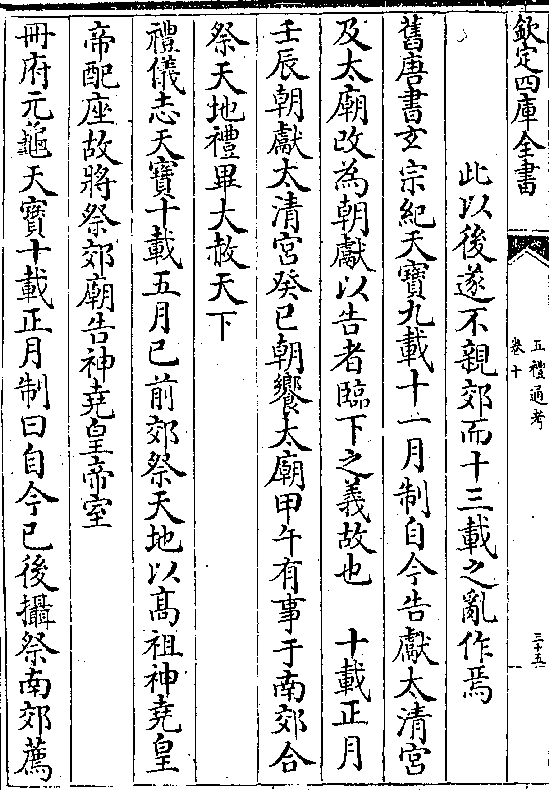 欽定四庫全書
五禮通考
卷十
三十五
此以後遂不親郊而十三載之亂作焉
舊唐書玄宗紀天寶九載十一月制自今告獻太清宮
及太廟改為朝獻以告者臨下之義故也 十載正月
壬辰朝獻太清宮癸巳朝饗太廟甲午有事于南郊合
祭天地禮畢大赦天下
禮儀志天寶十載五月已前郊祭天地以髙祖神堯皇
帝配座故將祭郊廟告神堯皇帝室
冊府元龜天寶十載正月制曰自今已後攝祭南郊薦